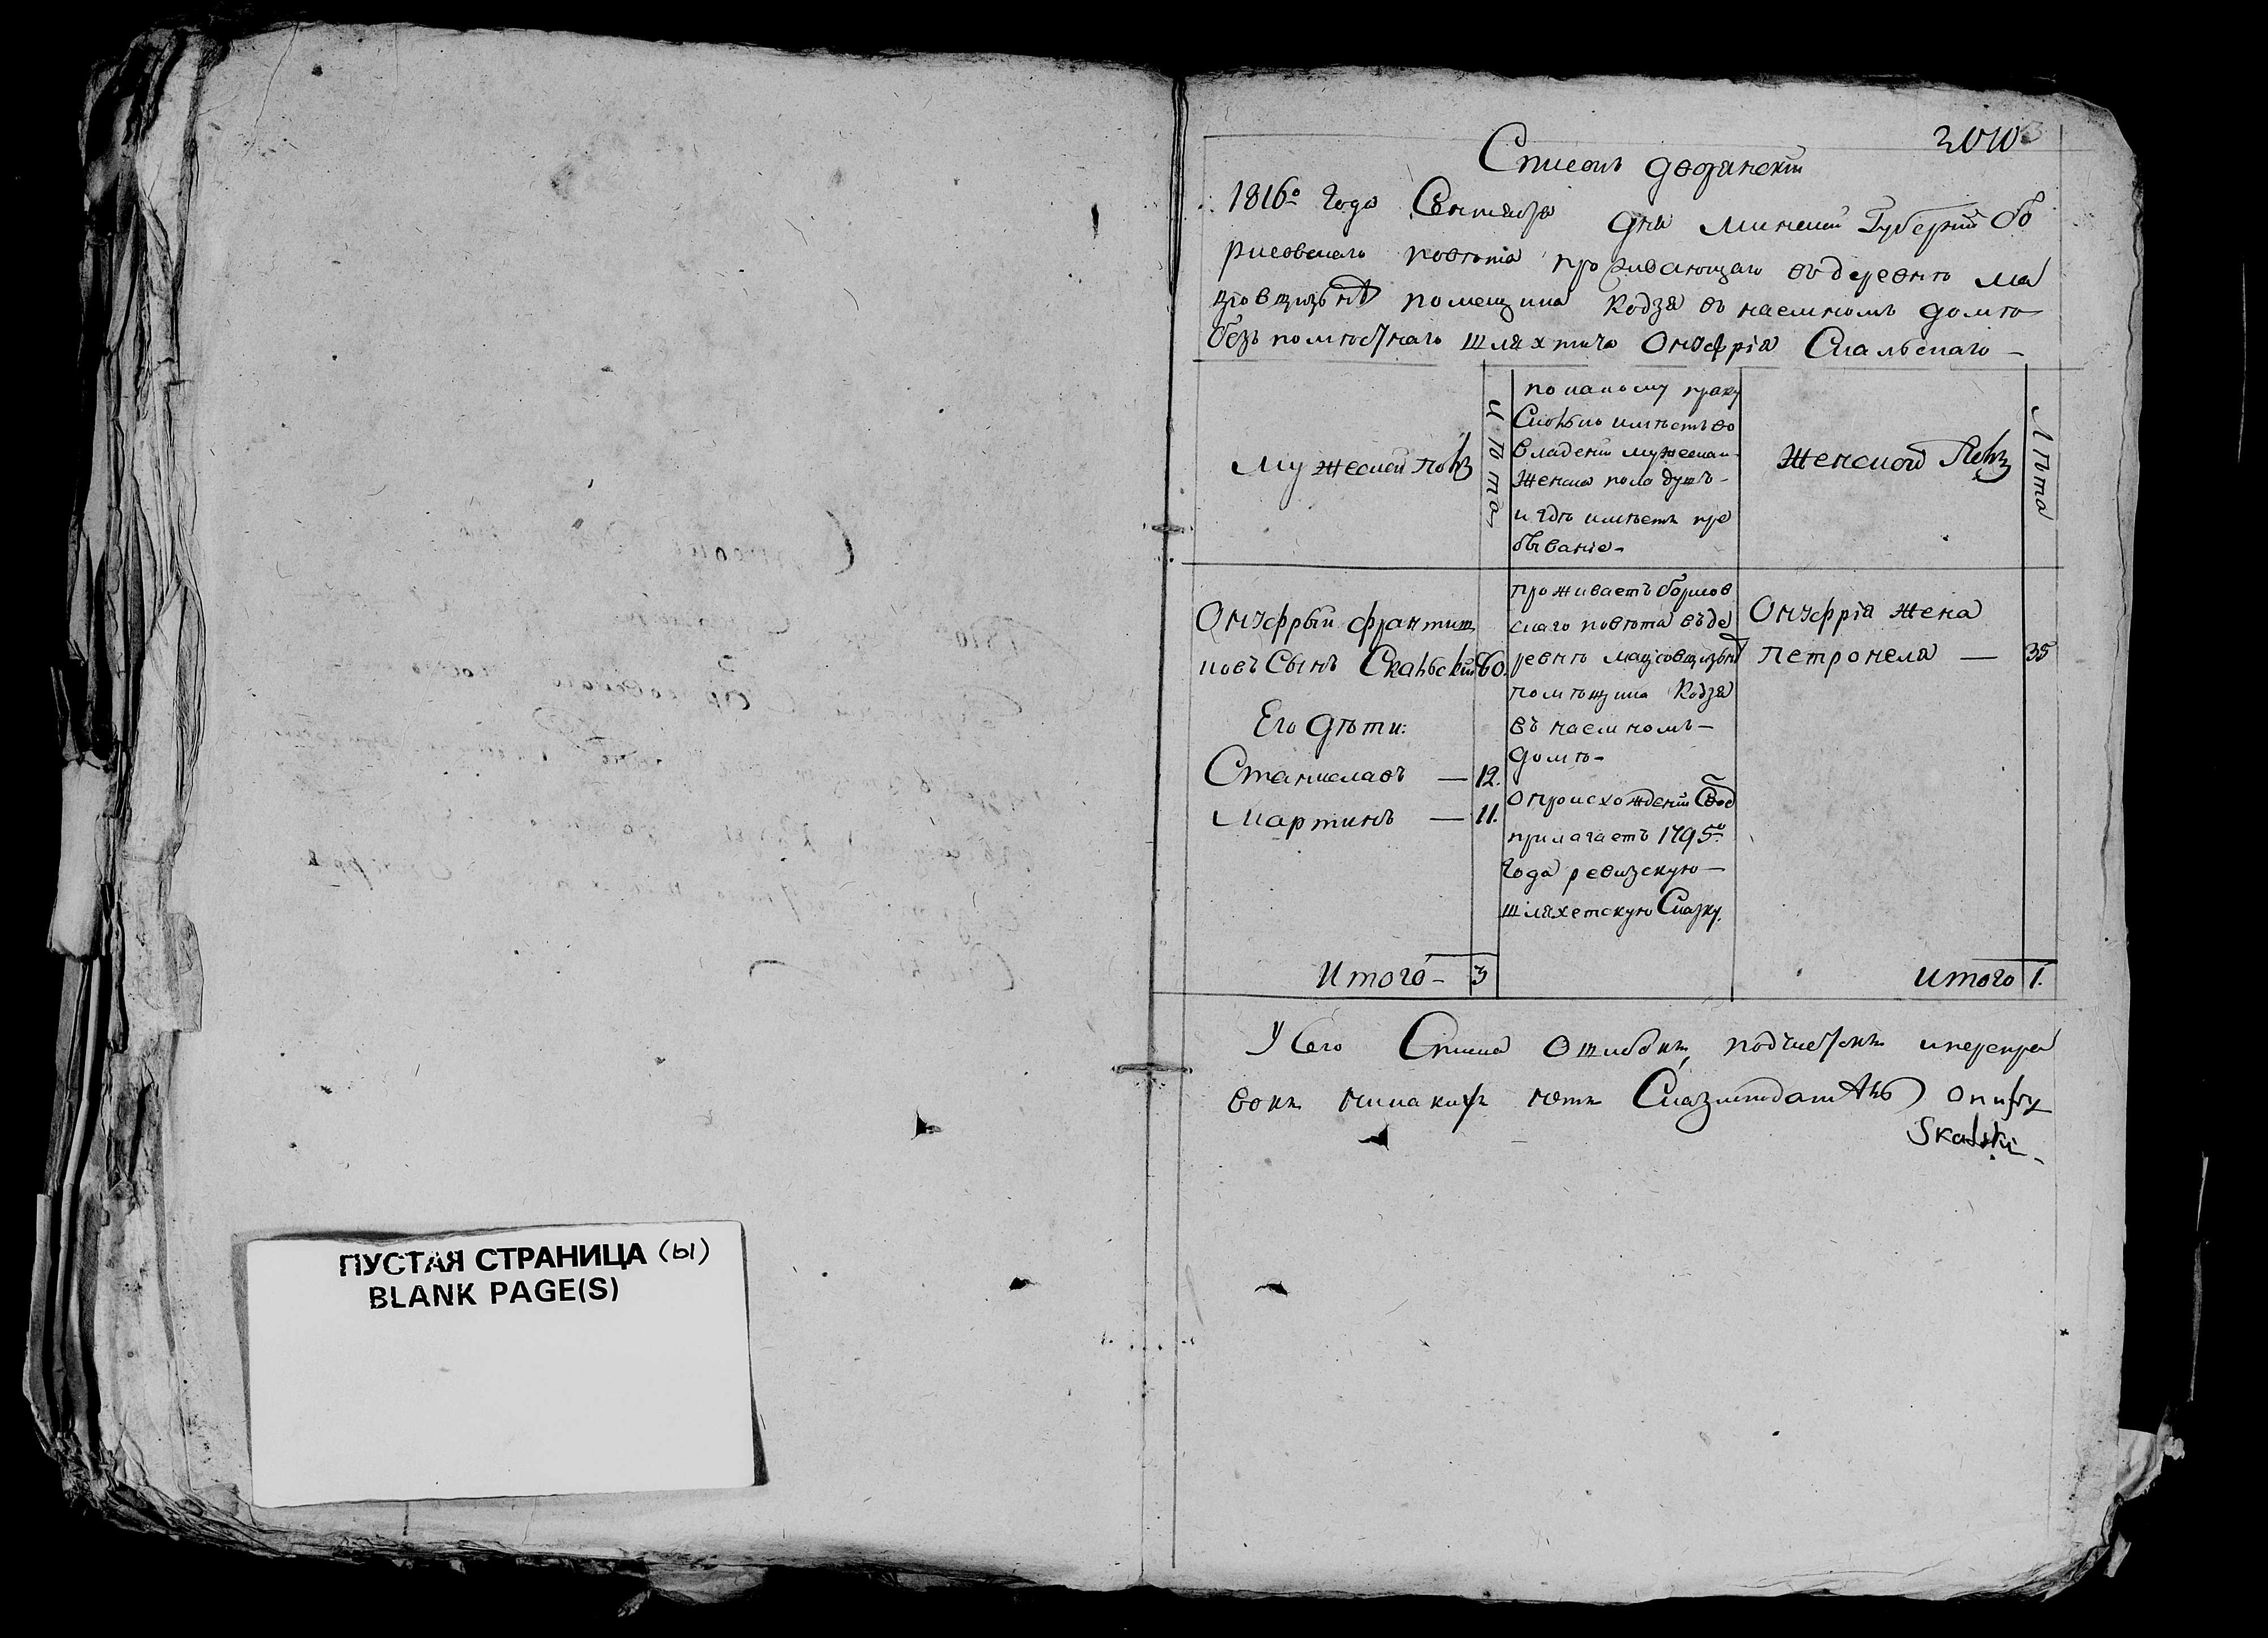 ПУСТАЯ СТРАНИЦА (ы)
BLANK PAGE(S)
Списокъ дворянскій
1816го года Сентября дня Минской Губерніи Бо
рисовскаго повѣта проживающаго въ деревнѣ Ма
цковщизнѣ помещика Кодзя въ наемномъ домѣ
безъпомѣстнаго шляхтича Онуфрія Скальскаго —
Мужескій полъ
Лѣта
по какому праву
Сколько имѣетъ во
владеніи мужеска и
женска пола душъ —
и гдѣ имѣетъ пре
бываніе —
Женской Полъ
Лѣта
Онуфрый францишк
ковъ Сынъ Скальскій 60.
Его дѣти:
Станиславъ — 12.
Мартинъ — 11.
проживаетъ борисов
скаго повѣта въ де
ревнѣ Мацковщизнѣ
помѣщика Кодзя
въ наемномъ —
домѣ —
О происхожденіи
прилагаетъ 1795го
года ревизскую —
шляхетскую Сказку.
Онуфрія жена
Петронеля — 35
Итого — 3
Итого 1.
У сего Списка Ошибокъ, подчистокъ и переправ
вокъ никакихъ нетъ Сказкодатель Onufry
Skalski —